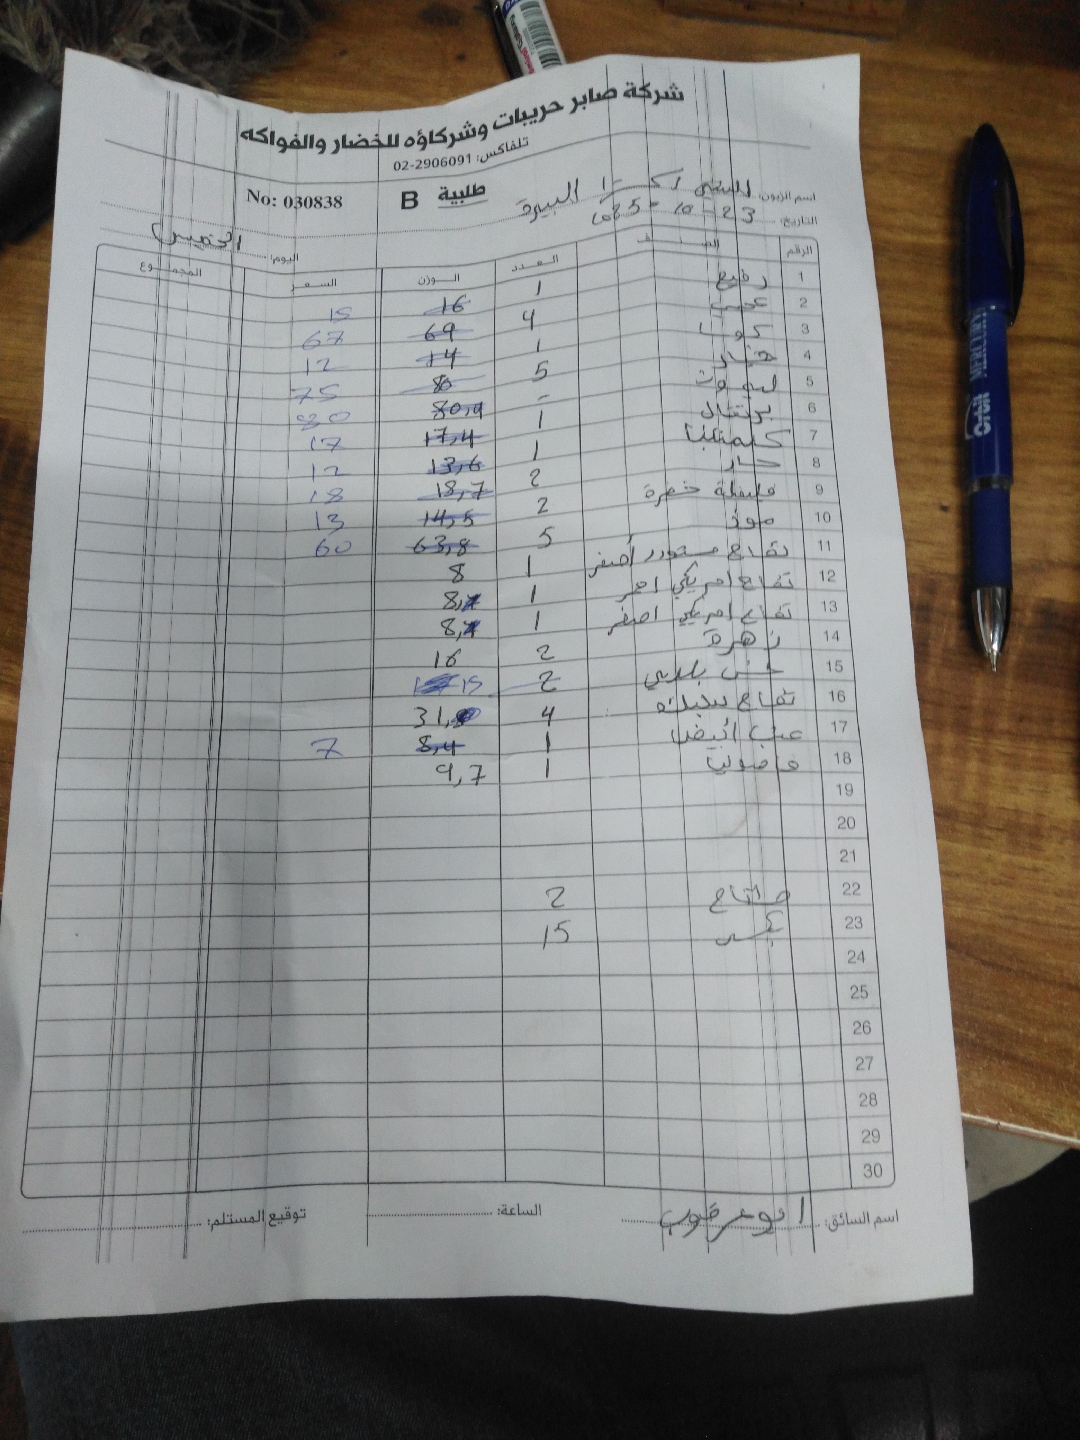 شركة صابر حريبات وشركاؤه للخضار والفواكه
تلفاكس: 02-2906091
No: 030838 B طلبية
اسم الزبون: البيرة
التاريخ: 23-10-2025
اليوم: الخميس
الرقم الصنف العدد الوزن السعر المجموع
1 رفيع 1 16 15
2 عجر 4 69 67
3 كوسا 1 14 12
4 خيار 5 80 75
5 ليمون - 80,4 80
6 برتقال 1 17,4 17
7 كلمنتينا 1 13,6 12
8 حار 2 18,7 18
9 فليفلة خضرة 2 14,5 13
10 موز 5 63,8 60
11 تفاح مستورد أصفر 1 8
12 تفاح امريكي احمر 1 8
13 تفاح امريكي اصفر 1 8
14 زهرة 2 16
15 خس بلدي 2 15
16 تفاح 4 31
17 عنب أبيض 1 8,4 7
18 فاصوليا 1 9,7
19
20
21
22 مشتاح 2
23 بكس 15
24
25
26
27
28
29
30
اسم السائق: ابو عرقوب الساعة: توقيع المستلم: